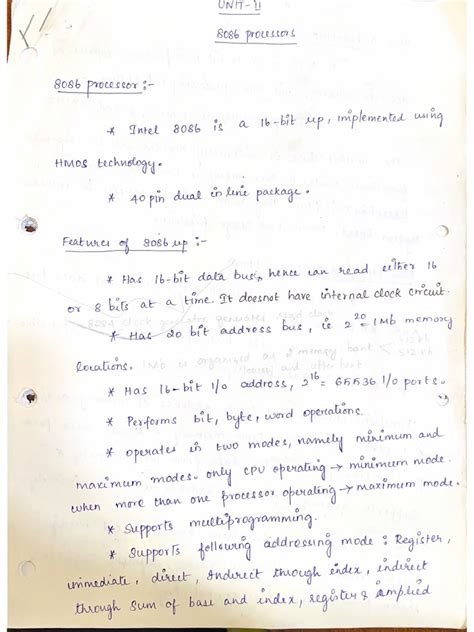 UNIT-II
8086 processors
8086 processor :-
* Intel 8086 is a 16-bit up, implemented using
HMOS technology.
* 40 pin dual in line package.
Features of 8086 up :-
* Has 16-bit data bus, hence can read either 16
or 8 bits at a time. It doesnot have internal clock circuit.
* Has 20 bit address bus, ie 2^20 = 1Mb memory
locations.
1Mb is organised as 2 memory bank
512 kb
* Has 16-bit I/o address, 2^16 = 65536 I/o ports.
* Performs bit, byte, word operations.
* operates in two modes, namely minimum and
maximum modes- only CPU operating → minimum mode.
when more than one processor operating → maximum mode.
* Supports multiprogramming.
* Supports following addressing mode : Register,
immediate, direct, Indirect through index, indirect
through sum of base and index, register & implied